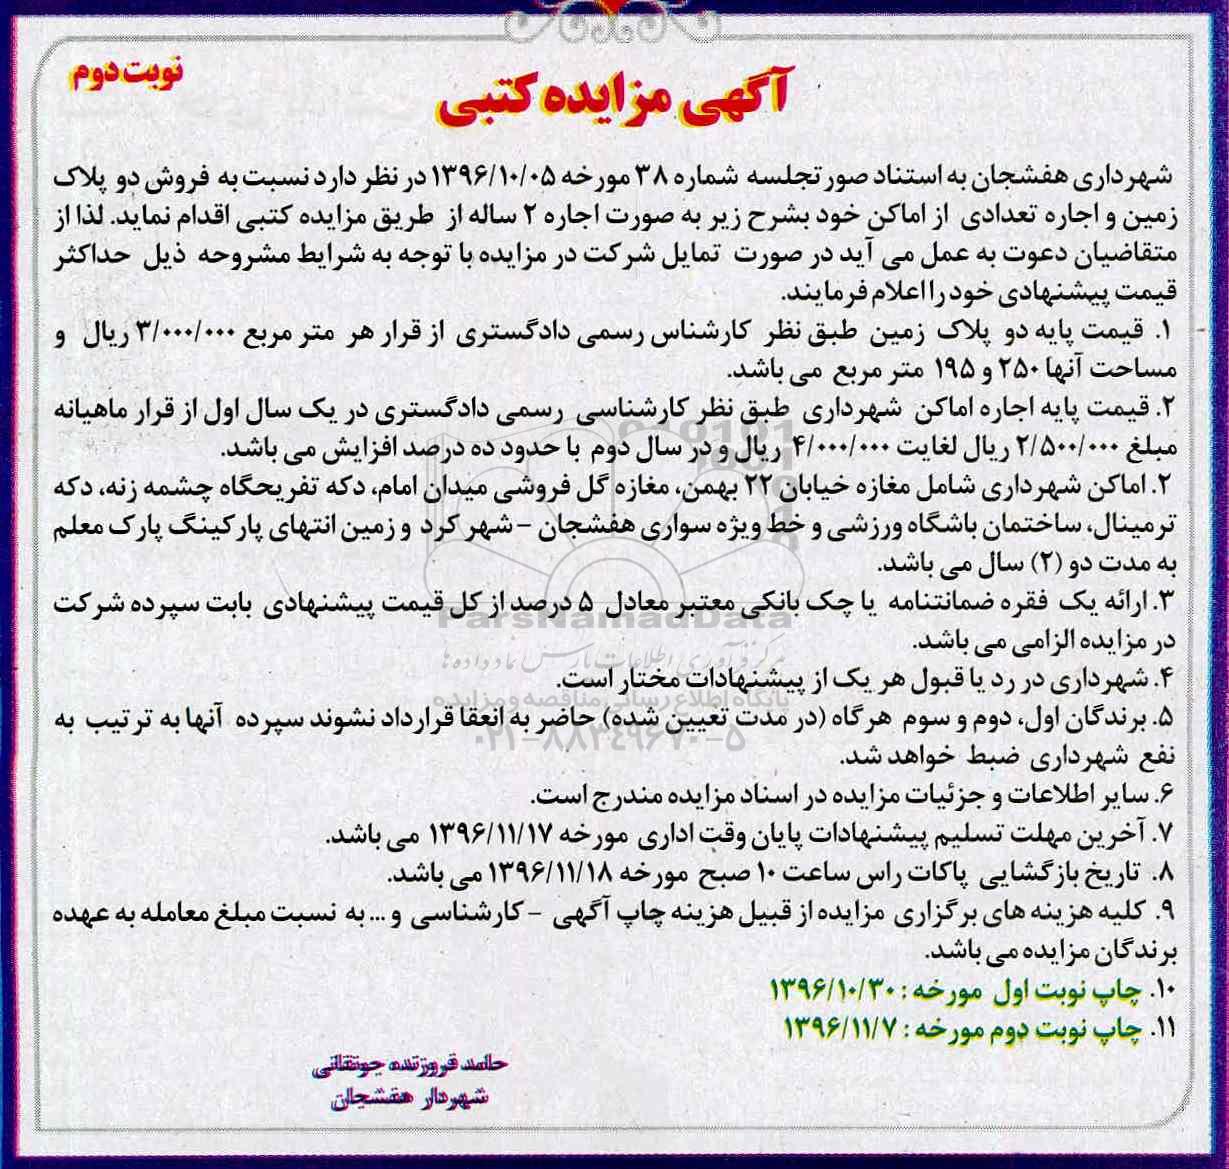 نوبت دوم
آگهی مزایده کتبی
شهرداری هفشجان به استناد صورتجلسه شماره ۳۸ مورخه ۱۳۹۶/۱۰/۰۵ در نظر دارد نسبت به فروش دو پلاک
زمین و اجاره تعدادی از اماکن خود بشرح زیر به صورت اجاره ۲ ساله از طریق مزایده کتبی اقدام نماید. لذا از
متقاضیان دعوت به عمل می آید در صورت تمایل شرکت در مزایده با توجه به شرایط مشروحه ذیل حداکثر
قیمت پیشنهادی خود را اعلام فرمایند.
۱. قیمت پایه دو پلاک زمین طبق نظر کارشناس رسمی دادگستری از قرار هر متر مربع ۳/۰۰۰/۰۰۰ ریال و
مساحت آنها ۲۵۰ و ۱۹۵ متر مربع می باشد.
۲. قیمت پایه اجاره اماکن شهرداری طبق نظر کارشناسی رسمی دادگستری در یک سال اول از قرار ماهیانه
مبلغ ۲/۵۰۰/۰۰۰ ریال لغایت ۴/۰۰۰/۰۰۰ ریال و در سال دوم با حدود ده درصد افزایش می باشد.
۲. اماکن شهرداری شامل مغازه خیابان ۲۲ بهمن، مغازه گل فروشی میدان امام، دکه تفریحگاه چشمه زنه، دکه
ترمینال، ساختمان باشگاه ورزشی و خط ویژه سواری هفشجان - شهر کرد و زمین انتهای پارکینگ پارک معلم
به مدت دو (۲) سال می باشد.
۳. ارائه یک فقره ضمانتنامه یا چک بانکی معتبر معادل ۵ درصد از کل قیمت پیشنهادی بابت سپرده شرکت
در مزایده الزامی می باشد.
۴. شهرداری در رد یا قبول هر یک از پیشنهادات مختار است.
۵. برندگان اول، دوم و سوم هرگاه (در مدت تعیین شده) حاضر به انعقا قرارداد نشوند سپرده آنها به ترتیب به
نفع شهرداری ضبط خواهد شد.
۶. سایر اطلاعات و جزئیات مزایده در اسناد مزایده مندرج است.
۷. آخرین مهلت تسلیم پیشنهادات پایان وقت اداری مورخه ۱۳۹۶/۱۱/۱۷ می باشد.
۸. تاریخ بازگشایی پاکات راس ساعت ۱۰ صبح مورخه ۱۳۹۶/۱۱/۱۸ می باشد.
۹. کلیه هزینه های برگزاری مزایده از قبیل هزینه چاپ آگهی - کارشناسی و ... به نسبت مبلغ معامله به عهده
برندگان مزایده می باشد.
۱۰. چاپ نوبت اول مورخه : ۱۳۹۶/۱۰/۳۰
۱۱. چاپ نوبت دوم مورخه : ۱۳۹۶/۱۱/۷
حامد فروزنده جونقانی
شهردار هفشجان
ParsNamadData
مرکز فرآوری اطلاعات پارس نماد داده ها
پایگاه اطلاع رسانی مناقصه و مزایده
۰۲۱-۸۸۳۴۹۶۷۰-۵